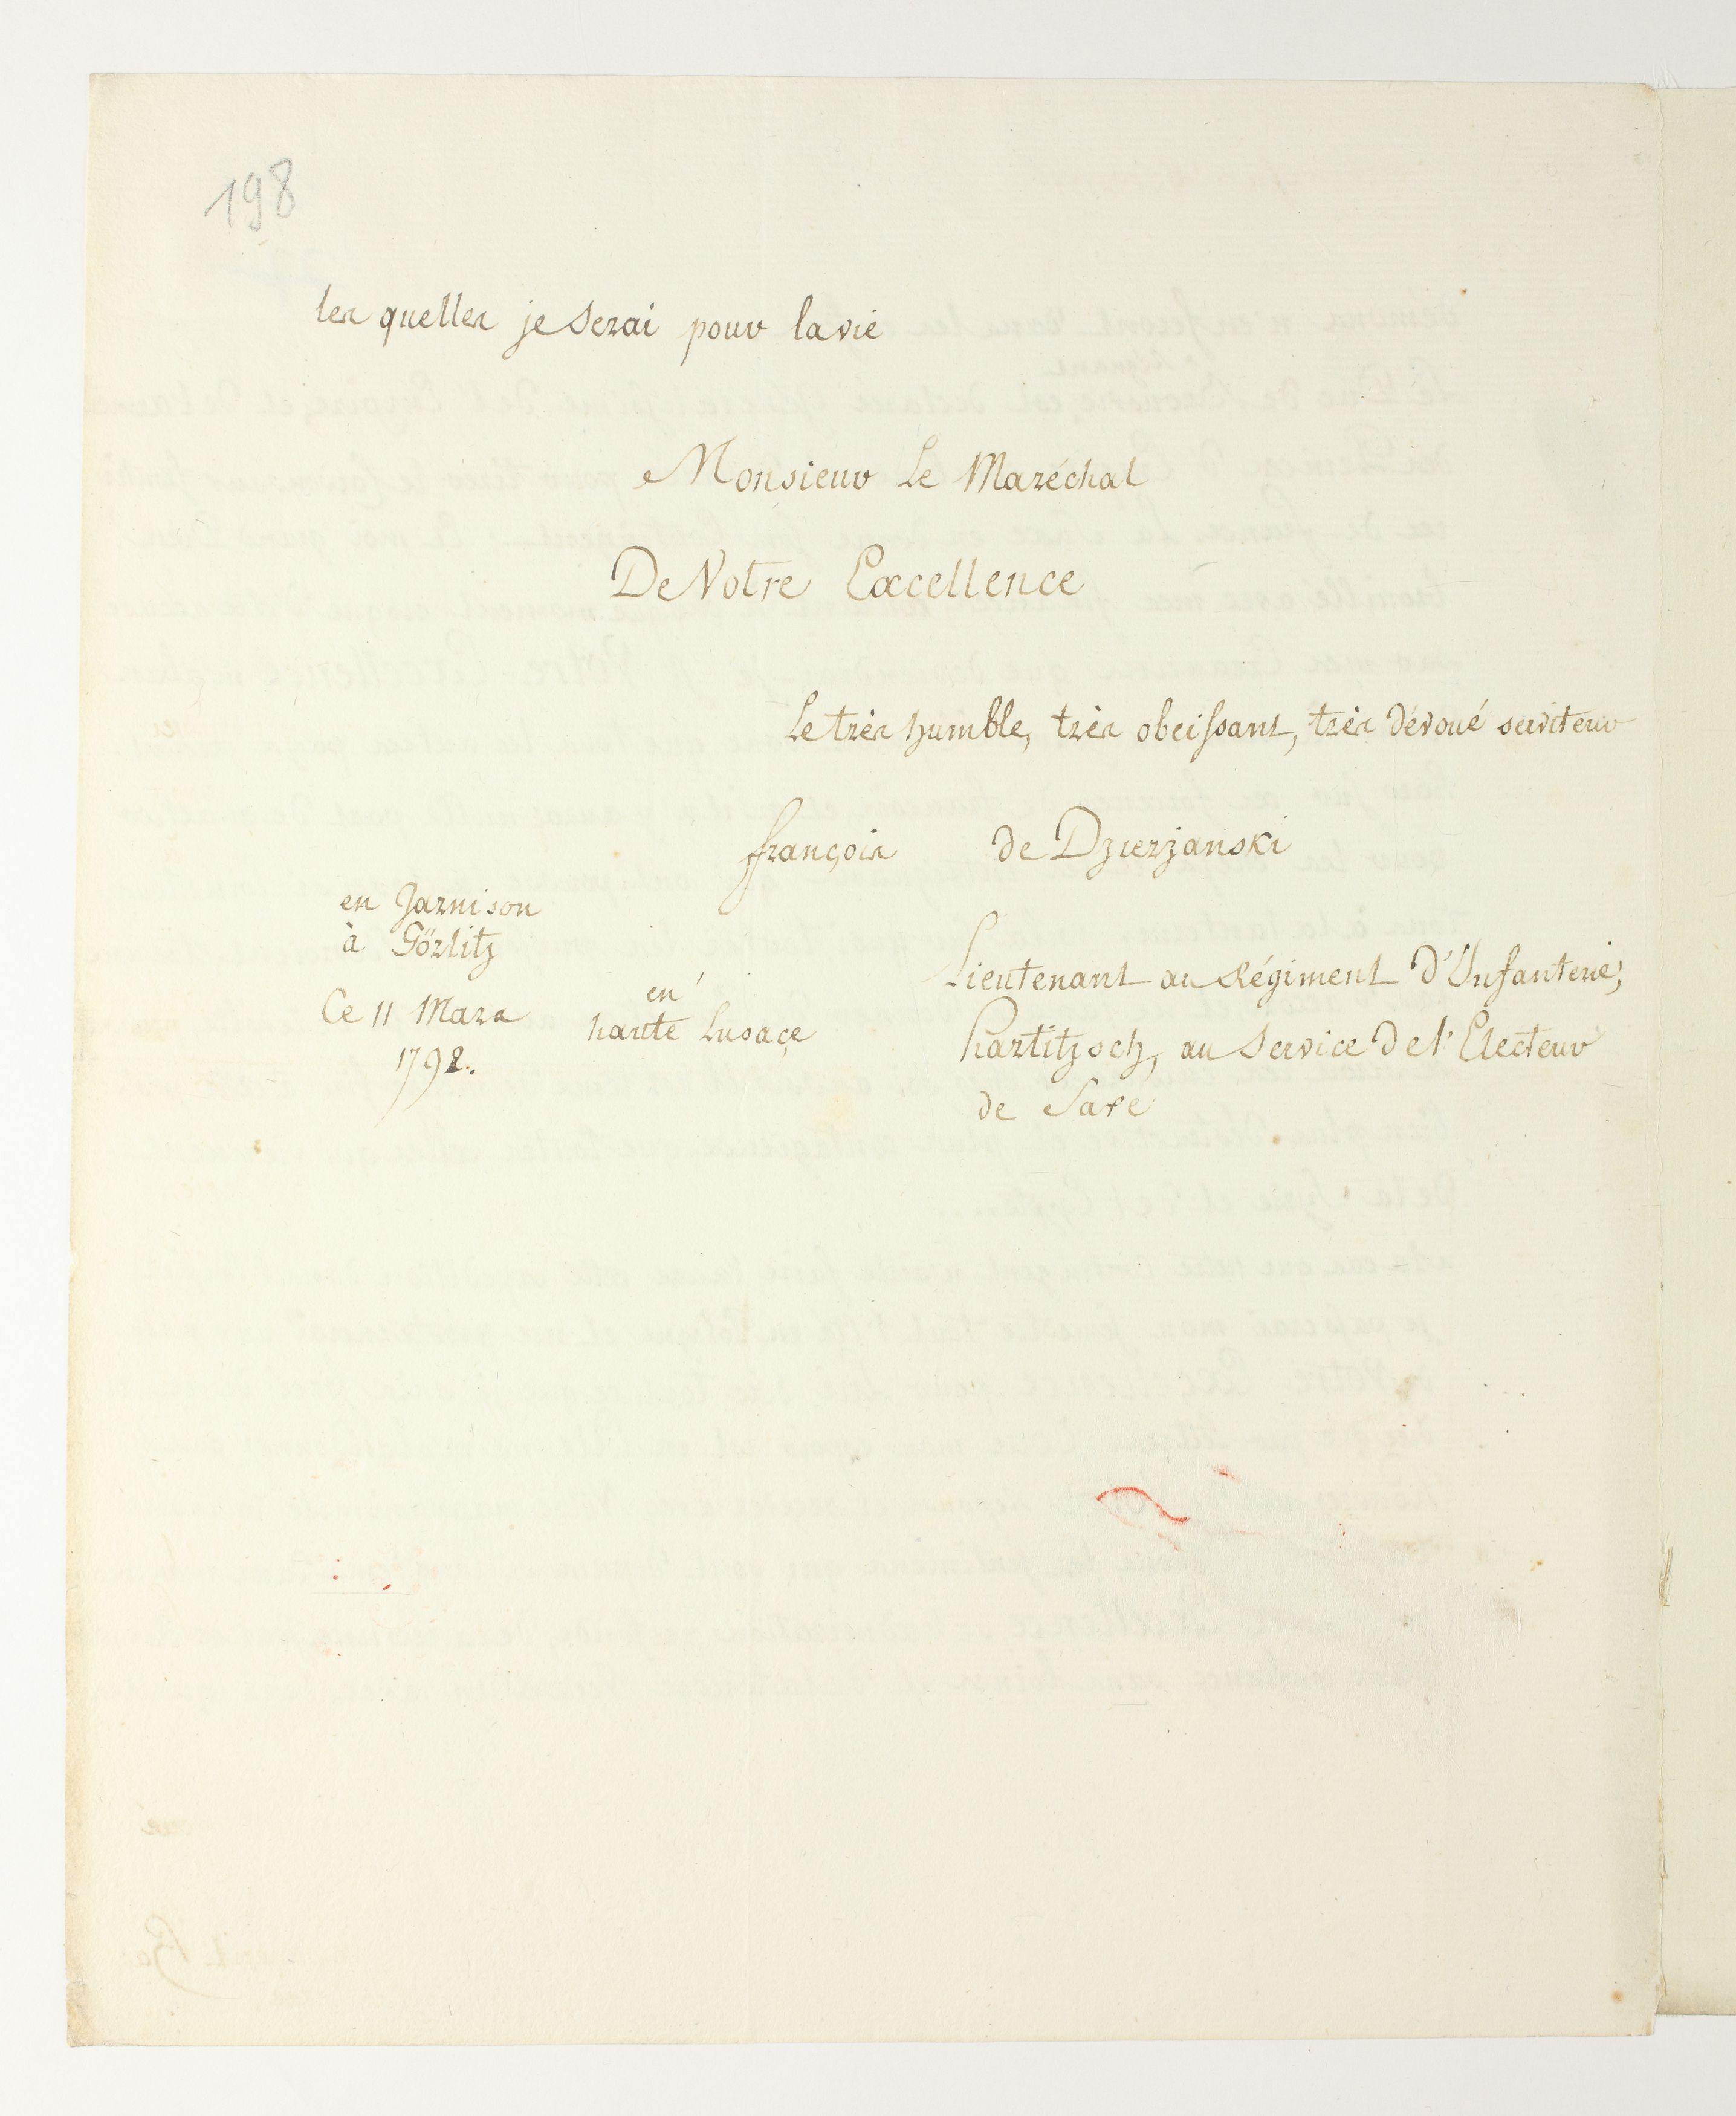 198
les quelles je serai pour la vie
Monsieur Le Maréchal
De Votre Excellence
Le très humble, très obeissant, très dévoué serviteur
françois de Dzierzanski
en Garnison
à Görlitz
en
haute Lusace
Ce 11 Mars
1792.
Lieutenant au Régiment d'Infanterie,
Hartitzsch, au Service de l'Electeur
de Saxe